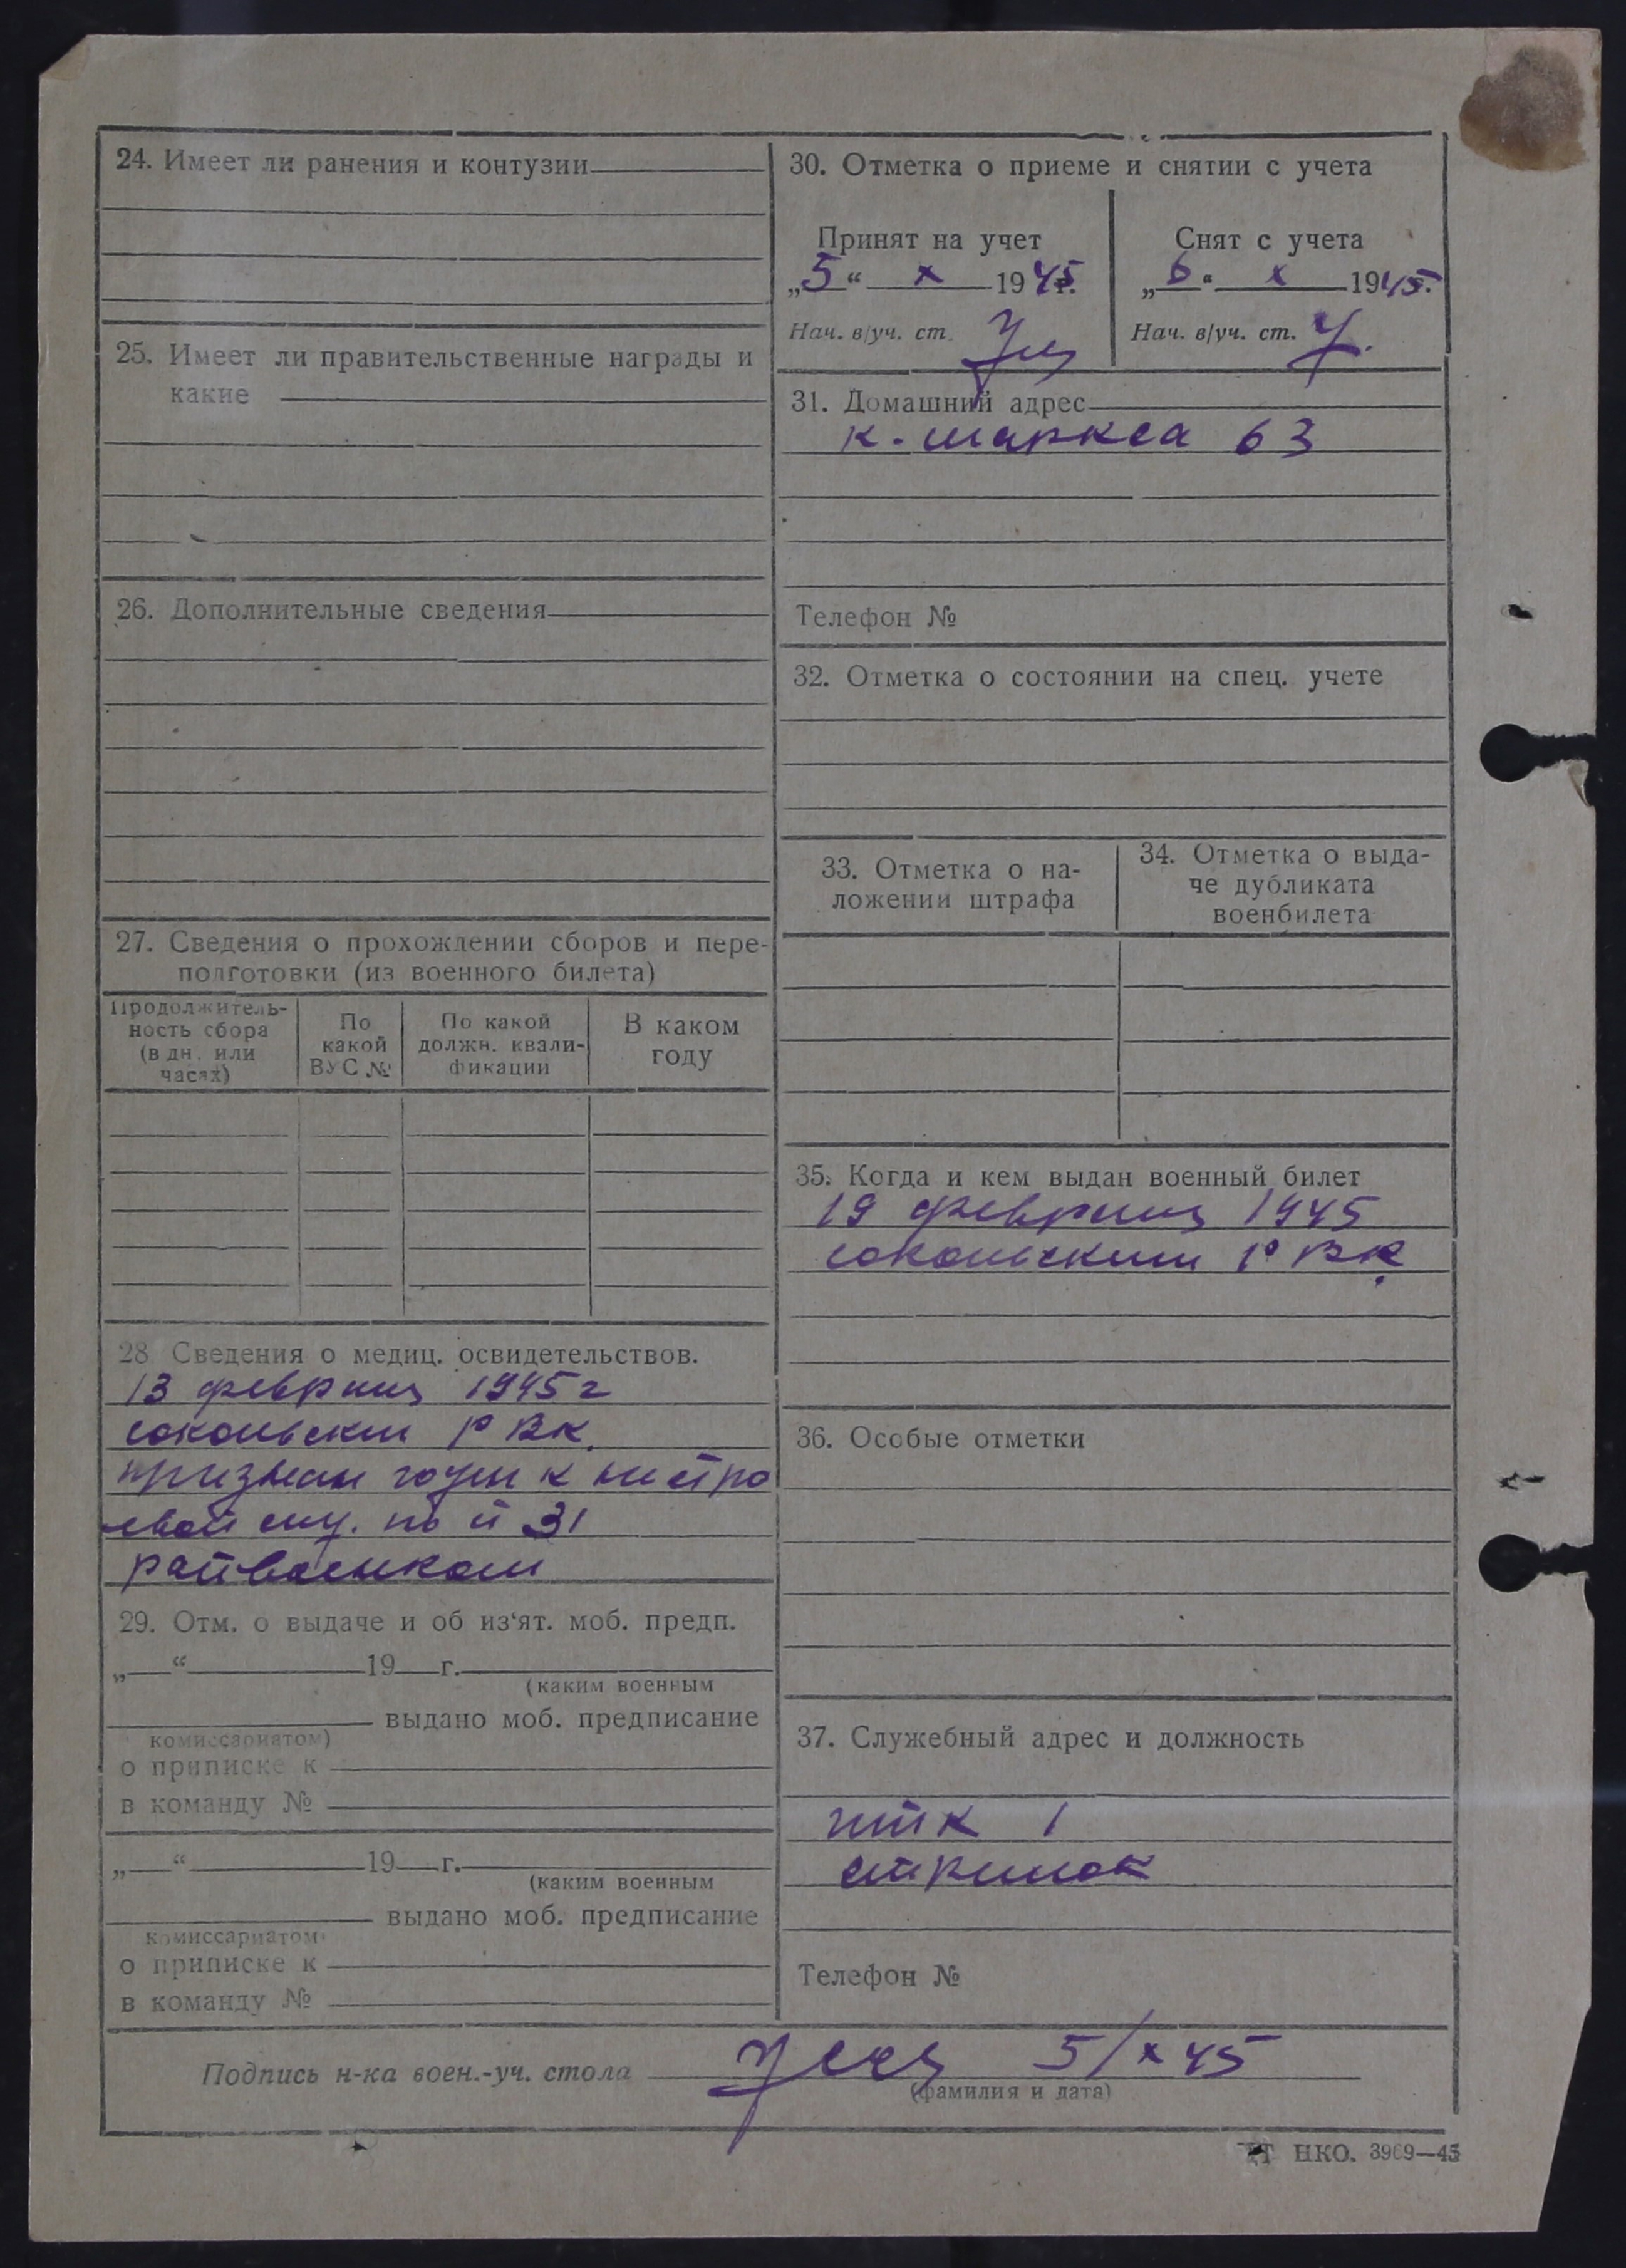 24. Имеет ли ранения и контузии
25. Имеет ли правительственные награды и
какие
26. Дополнительные сведения
27. Сведения о прохождении сборов и пере-
подготовки (из военного билета)
Продолжитель-
ность сбора
(в дн. или
часах)
По
какой
ВУС №
По какой
должн. квали-
фикации
В каком
году
28 Сведения о медиц. освидетельствов.
13 февраля 1945 г
сокольским РВК.
признан годен к нестро
евой слу. по ст 31
райвоенком
29. Отм. о выдаче и об из‘ят. моб. предп.
„ “ 19 г.
(каким военным
выдано моб. предписание
комиссариатом)
о приписке к
в команду №
„ “ 19 г.
(каким военным
выдано моб. предписание
комиссариатом
о приписке к
в команду №
30. Отметка о приеме и снятии с учета
Принят на учет
„5“ X 1945г.
Нач. в/уч. ст.
Снят с учета
„6“ X 1945г.
Нач. в/уч. ст.
31. Домашний адрес
К. Маркса 63
Телефон №
32. Отметка о состоянии на спец. учете
33. Отметка о на-
ложении штрафа
34. Отметка о выда-
че дубликата
военбилета
35. Когда и кем выдан военный билет
19 февраля 1945
сокольским РВК.
36. Особые отметки
37. Служебный адрес и должность
итк 1
стрелок
Телефон №
Подпись н-ка воен.-уч. стола 5/X 45
(фамилия и дата)
НКО. 3969—45